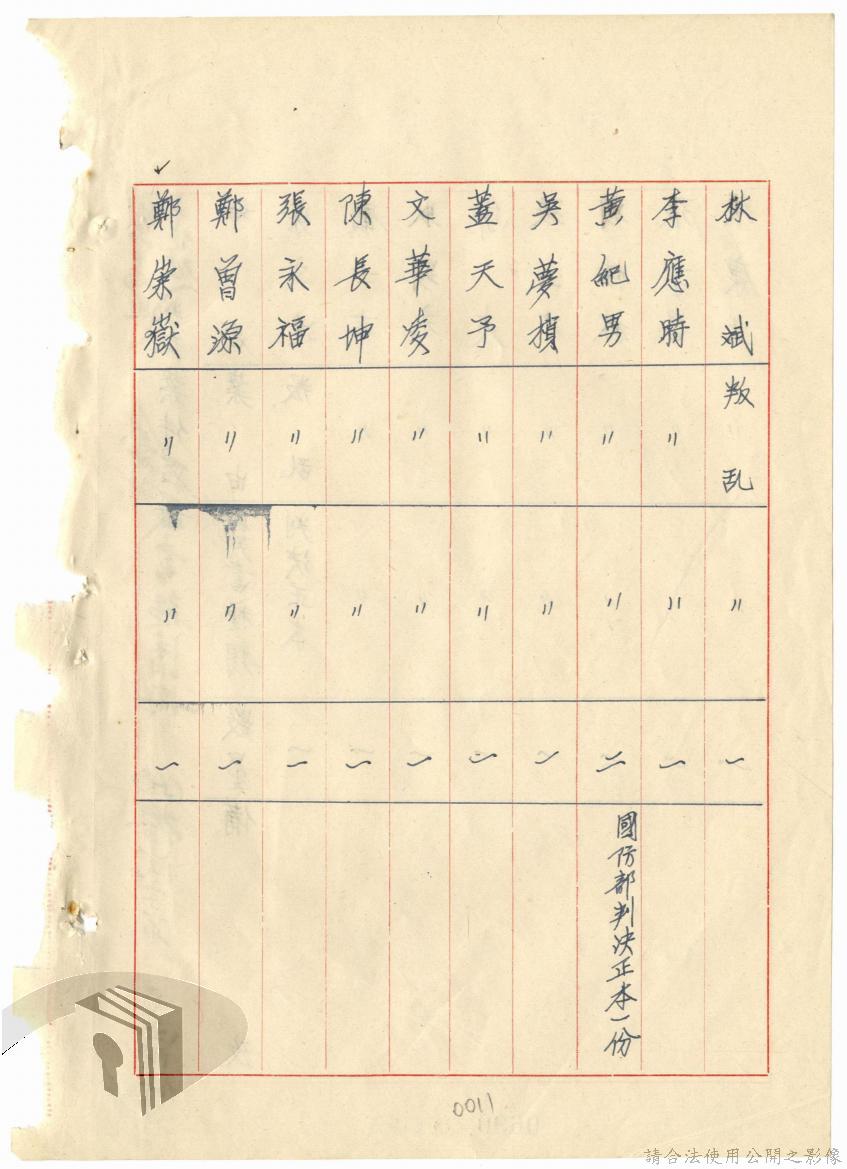 林斌 叛乱 〃 一
李應時 〃 〃 一
黃紀男 〃 〃 二 國防部判決正本一份
吳夢楨 〃 〃 一
蓋天予 〃 〃 一
文華凌 〃 〃 一
陳長坤 〃 〃 一
張永福 〃 〃 一
鄭曾源 〃 〃 一
鄭崇嶽 〃 〃 一
0011
請合法使用公開之影像